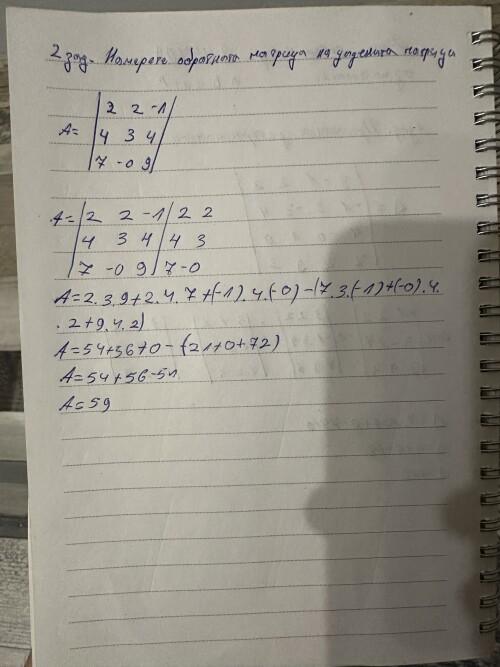 2 зад. Намерете обратната матрица на дадената матрица
2 2 -1
A= 4 3 4
7 -0 9
A= 2 2 -1 2 2
4 3 4 4 3
7 -0 9 7 -0
A=2.3.9+2.4.7+(-1).4.(-0)-(7.3.(-1)+(-0).4.
.2+9.4.2)
A=54+56+0-(-21+0+72)
A=54+56-51
A=59